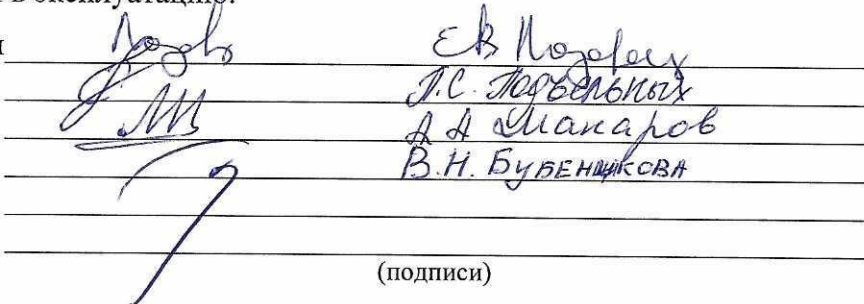 в эксплуатацию.
Е В
П.С. Подъельных
А А Макаров
В.Н. Бубенщикова
(подписи)